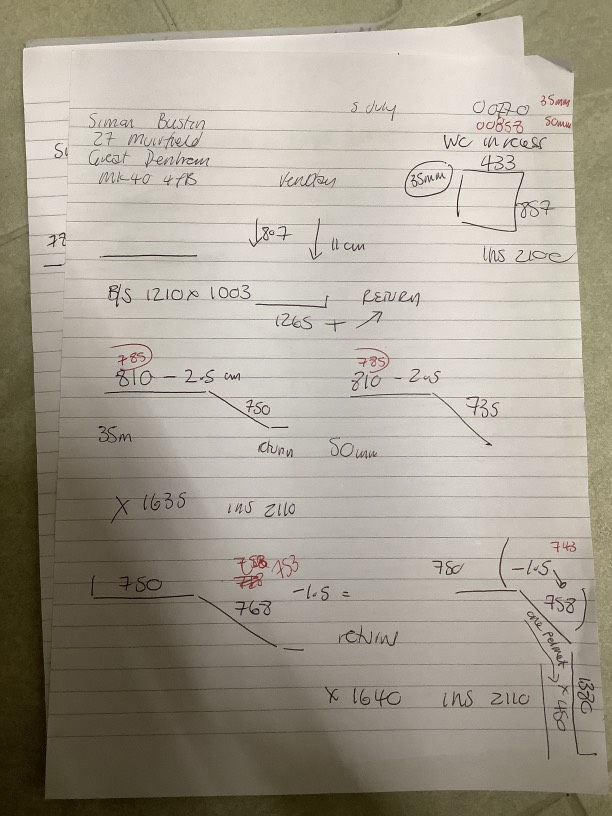 5 July
00770 35mm
00858 50mm
Simon Bustin
27 Muirfield
Great Denham
MK40 4FB
WC in recess
433
35mm
857
ins 2100
807
11cm
B/S 1210 x 1003
1265 +
RETURN
785
810 - 2.5 cm
750
35m
return
785
810 - 2.5
735
50mm
X 1635 ins 2110
750
758 753
768 -1.5 =
return
750
743
-1.5
758
one permet
x 480
X 1640 ins 2110